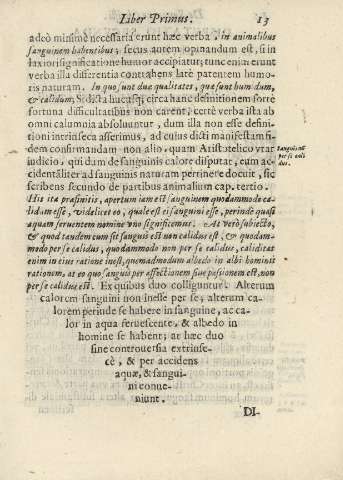 Liber Primus. 13
adeò minimè necessaria erunt hæc verba, in animalibus
sanguinem habentibus; secus autem opinandum est, si in
laxiori significatione humor accipiatur; tunc enim erunt
verba illa differentia contrahens latè patentem humo-
ris naturam. In quo sunt duæ qualitates, quæ sunt humidum,
& calidum; Si dicta hucusq; circa hanc definitionem fortè
fortuna difficultatibus non caret; certè verba ista ab
omni calumnia absoluuntur, dum illa non esse defini-
tioni intrinseca asserimus, ad cuius dicti manifestam fi-
dem confirmandam non alio, quam Aristotelico vtar
iudicio, qui dum de sanguinis calore disputat, eum ac-
cidentaliter ad sanguinis naturam pertinere docuit, sic
scribens secundo de partibus animalium cap. tertio.
Sanguis nõ
per se cali
dus.
His ita præmissis, apertum iam est sanguinem quodammodo ca-
lidum esse, videlicet eo, quale est ei sanguini esse, perinde quasi
aquam feruentem nomine vno significemus. At verò subiecto,
& quod tandem cum sit sanguis est non calidus est. Et quodam-
modo per se calidus, quodammodo non per se calidus, caliditas
enim in eius ratione inest, quemadmodum albedo in albi hominis
rationem, at eo quo sanguis per affectionem siue passionem est, non
per se calidus est. Ex quibus duo colliguntur. Alterum
calorem sanguini non inesse per se; alterum ca-
lorem perinde se habere in sanguine, ac ca-
lor in aqua feruescente, & albedo in
homine se habent; at hæc duo
sine controuersia extrinse-
cè, & per accidens
aquæ, & sangui-
ni conue-
niunt.
DI-